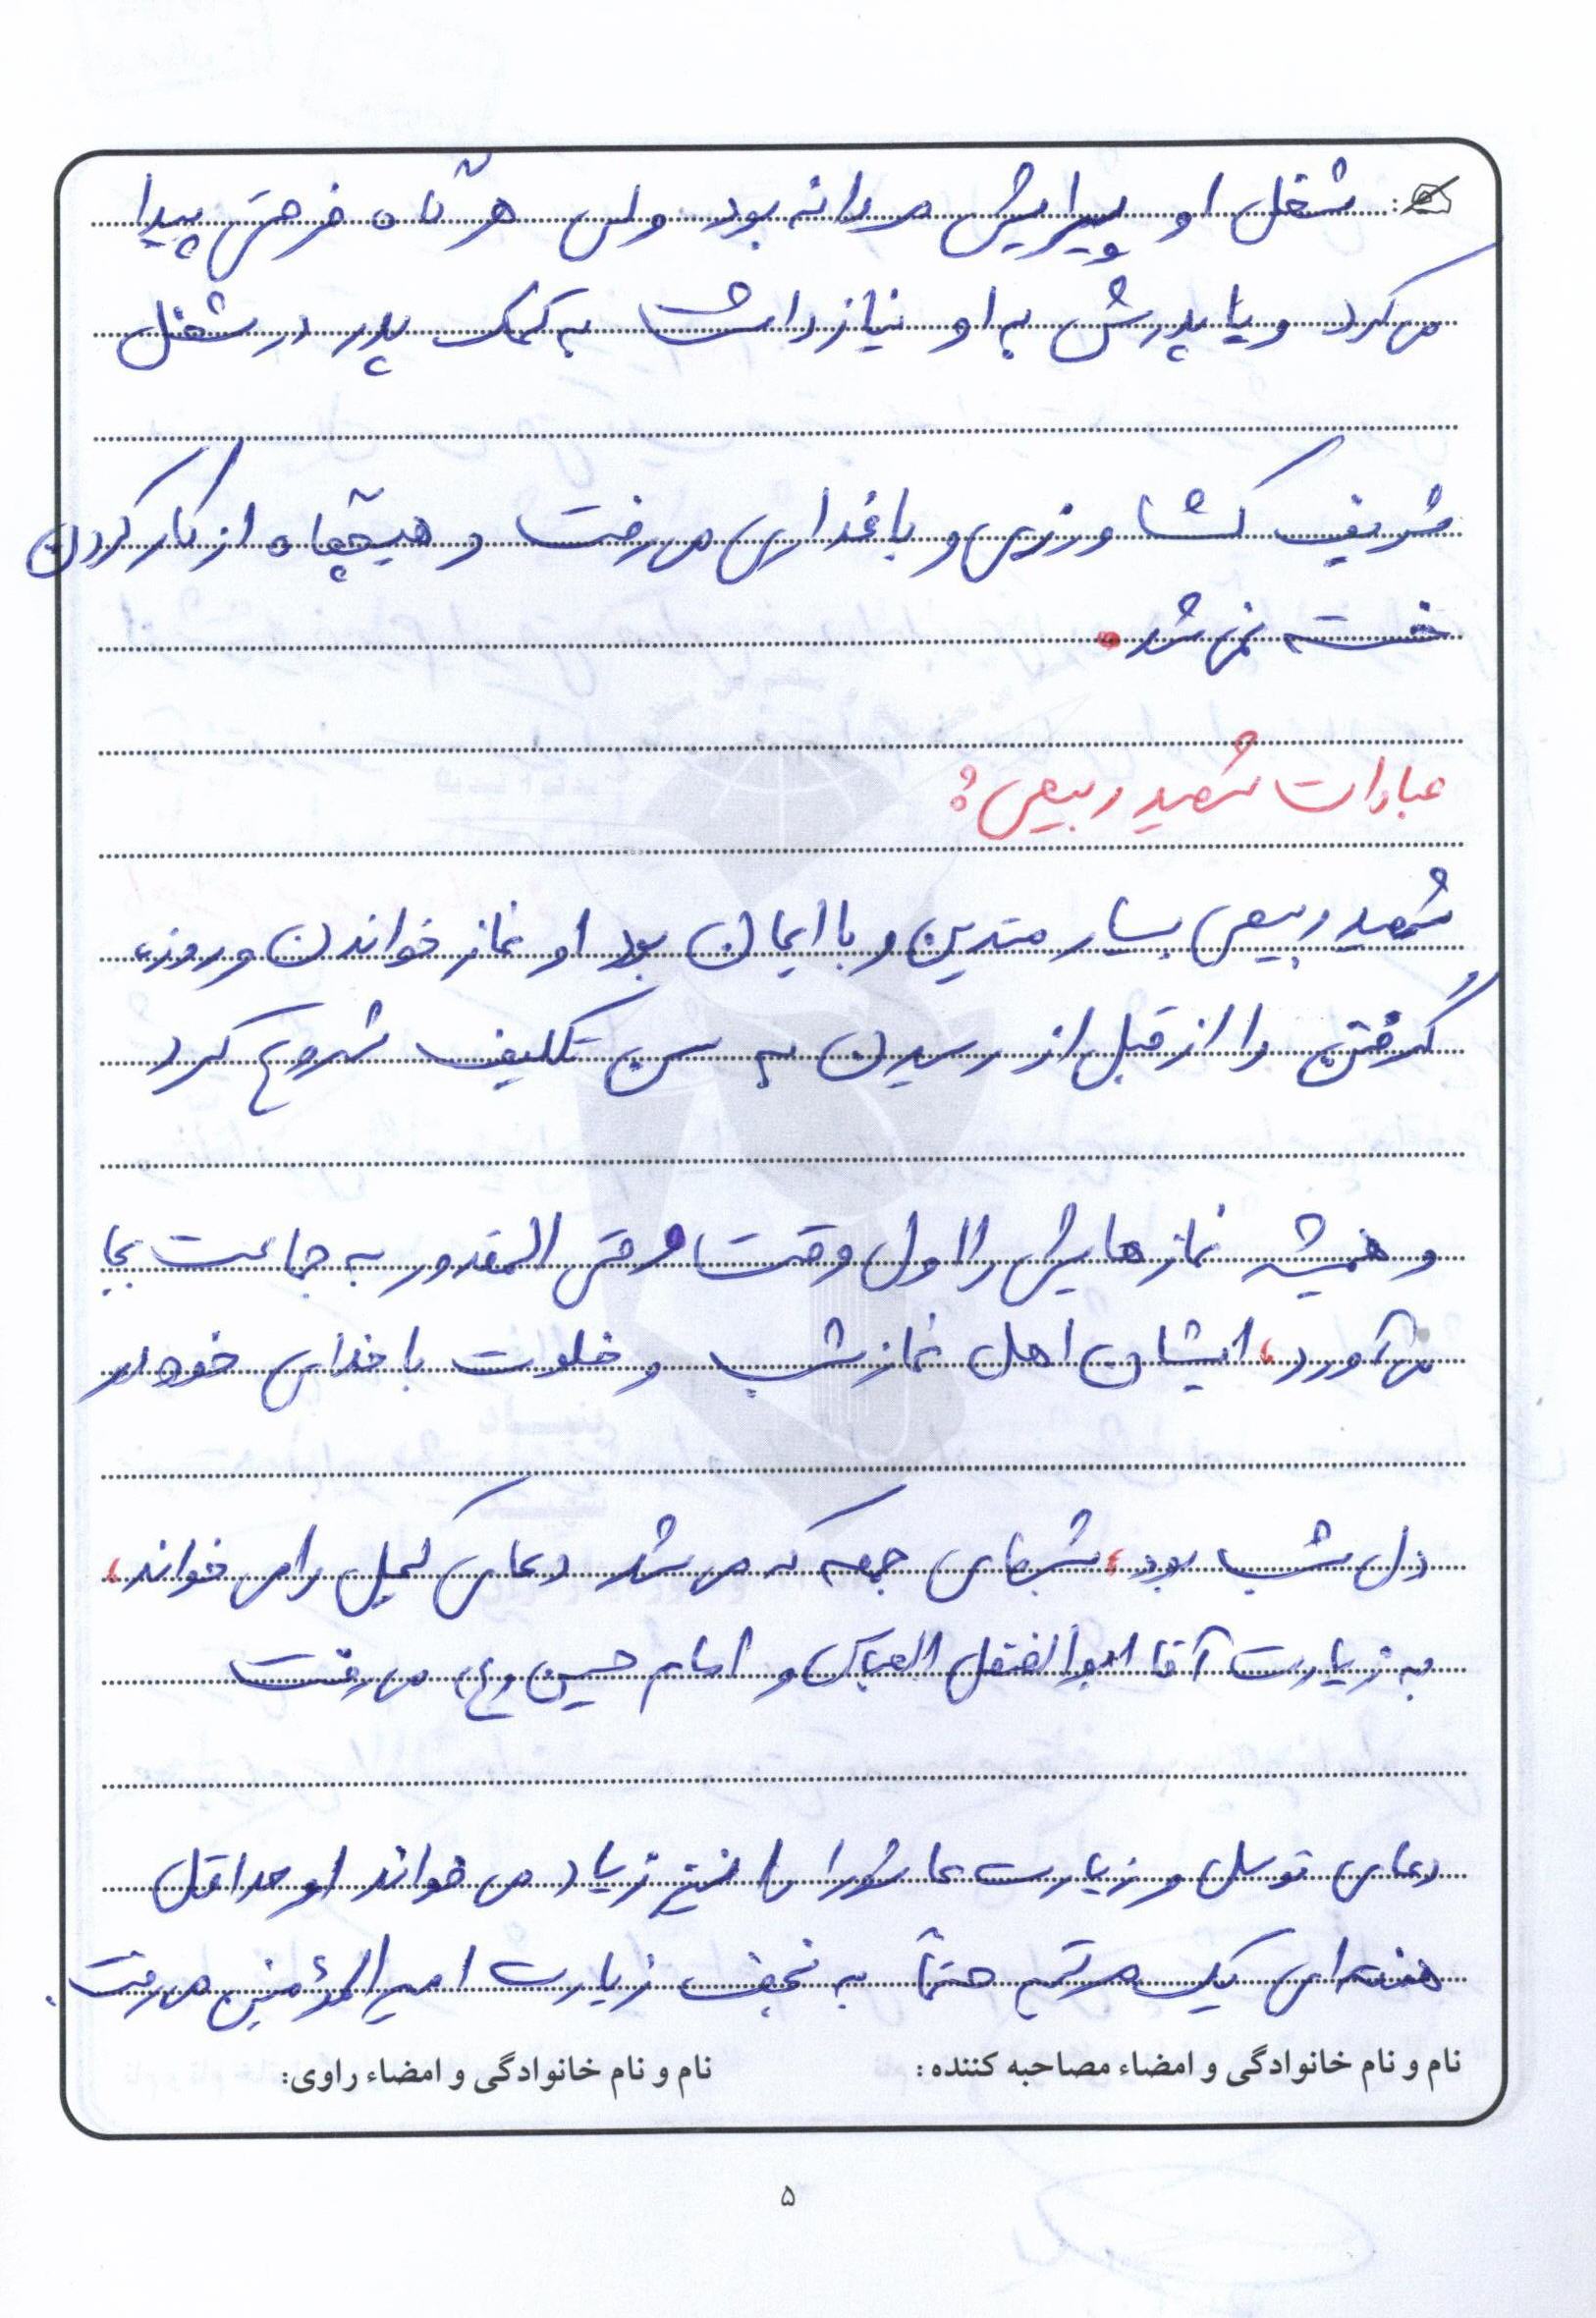 شغل او پیرایش مردانه بود ولی هرگاه فرصتی پیدا
می‌کرد و یا پدرش به او نیاز داشت به کمک پدر در شغل
شریف کشاورزی و باغداری می‌رفت و هیچگاه از کار کردن
خسته نمی‌شد.
عبادات شهید ربیعی:
شهید ربیعی بسیار متدین و با ایمان بود او نماز خواندن و روزه
گرفتن را از قبل از رسیدن به سن تکلیف شروع کرد
و همیشه نمازهایش را اول وقت و حتی المقدور به جماعت بجا
می‌آورد، ایشان اهل نماز شب و خلوت با خدای خود در
دل شب بود، شبهای جمعه که می‌شد دعای کمیل را می‌خواند،
به زیارت آقا ابوالفضل العباس و امام حسین (ع) می‌رفت
دعای توسل و زیارت عاشورا را نیز زیاد می‌خواند او حداقل
هفته‌ای یک مرتبه حتماً به نجف زیارت امیرالمؤمنین می‌رفت.
نام و نام خانوادگی و امضاء مصاحبه کننده: نام و نام خانوادگی و امضاء راوی:
۵